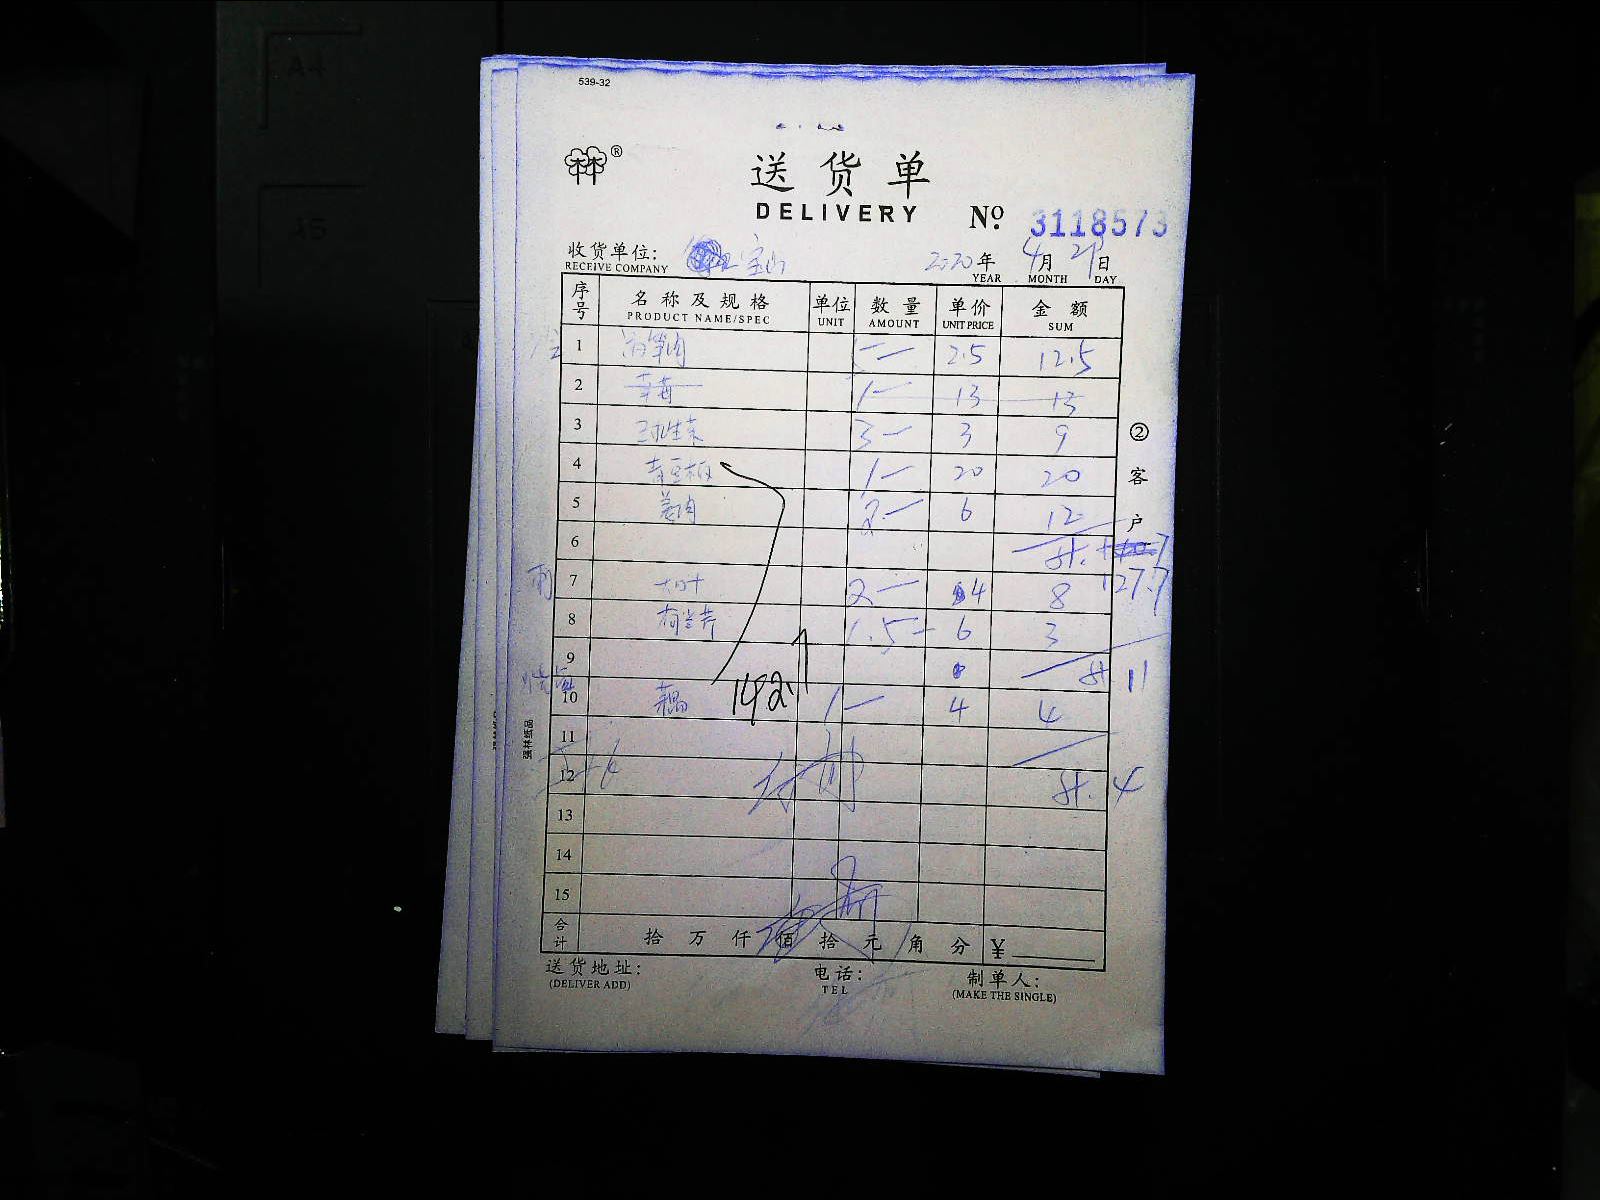 539-32
送货单
DELIVERY No. 3118573
收货单位: 宝山 2020年 4月 21日
RECEIVE COMPANY YEAR MONTH DAY
序号 名称及规格 单位 数量 单价 金额
PRODUCT NAME/SPEC UNIT AMOUNT UNIT PRICE SUM
1 2.5 12.5
2 草莓 1- 13 13
3 3- 3 9
4 青豆板 1- 20 20
5 姜肉 2- 6 12
6
127.7
7 大叶 2- 4 8
8 荷兰芹 1.5- 6 3
9 11
10 藕 1- 4 4
142
11
12 4
13
14
15
合计 拾 万 仟 佰 拾 元 角 分 ¥
② 客户
强林纸品
送货地址: 电话: 制单人:
(DELIVER ADD) TEL (MAKE THE SINGLE)